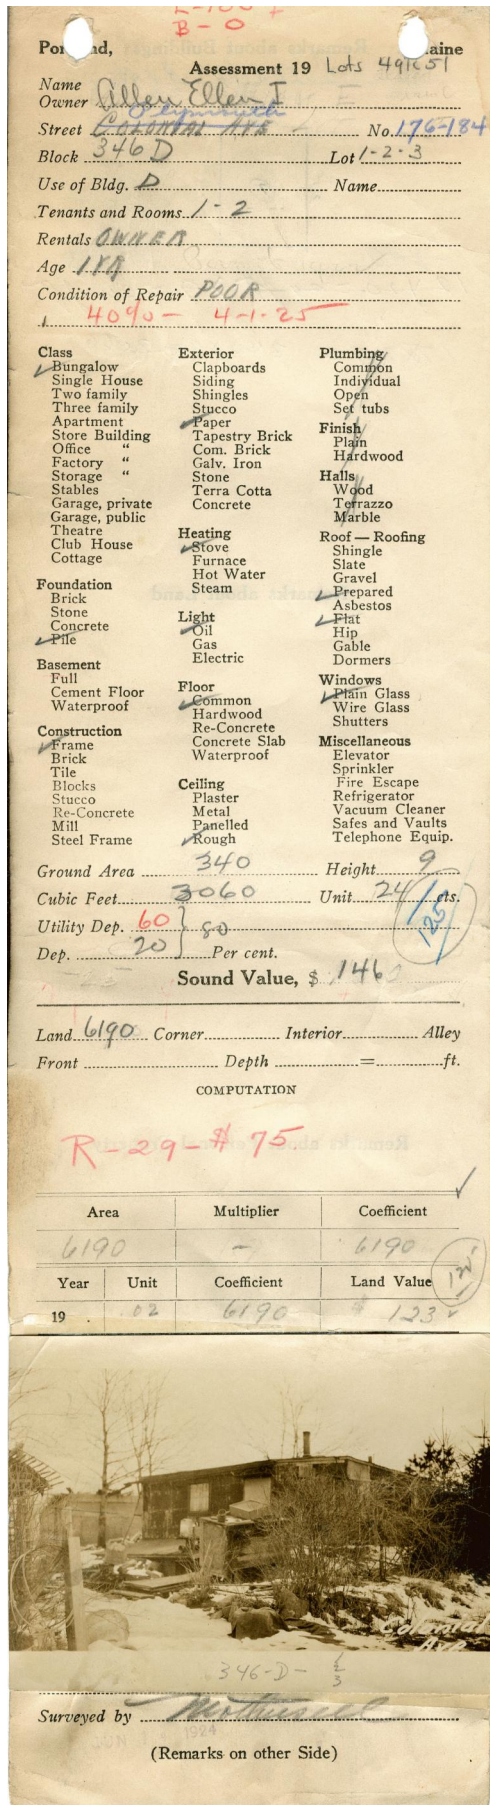 B-0
Portland, Maine
Assessment 19 Lots 49 & 51
Name
Owner Allen Ellen I
Plymouth
Street Colonial Ave No. 176-184
Block 346D Lot 1-2-3
Use of Bldg. D Name
Tenants and Rooms 1-2
Rentals OWNER
Age 1YR
Condition of Repair POOR
40% - 4-1-25
Class
Bungalow
Single House
Two family
Three family
Apartment
Store Building
Office "
Factory "
Storage "
Stables
Garage, private
Garage, public
Theatre
Club House
Cottage
Foundation
Brick
Stone
Concrete
Pile
Basement
Full
Cement Floor
Waterproof
Construction
Frame
Brick
Tile
Blocks
Stucco
Re-Concrete
Mill
Steel Frame
Exterior
Clapboards
Siding
Shingles
Stucco
Paper
Tapestry Brick
Com. Brick
Galv. Iron
Stone
Terra Cotta
Concrete
Heating
Stove
Furnace
Hot Water
Steam
Light
Oil
Gas
Electric
Floor
Common
Hardwood
Re-Concrete
Concrete Slab
Waterproof
Ceiling
Plaster
Metal
Panelled
Rough
Plumbing
Common
Individual
Open
Set tubs
Finish
Plain
Hardwood
Halls
Wood
Terrazzo
Marble
Roof — Roofing
Shingle
Slate
Gravel
Prepared
Asbestos
Flat
Hip
Gable
Dormers
Windows
Plain Glass
Wire Glass
Shutters
Miscellaneous
Elevator
Sprinkler
Fire Escape
Refrigerator
Vacuum Cleaner
Safes and Vaults
Telephone Equip.
Ground Area 340 Height 9
Cubic Feet 3060 Unit 24 cts.
Utility Dep. 60 } 80 125
Dep. 20 Per cent.
Sound Value, $ 146
Land 6190 Corner Interior Alley
Front Depth = ft.
COMPUTATION
R-29-$75
Area Multiplier Coefficient
6190 - 6190
Year Unit Coefficient Land Value 125
19 .02 6190 $ 123
Colonial
Ave
346-D-1/2/3
Surveyed by
1924
(Remarks on other Side)